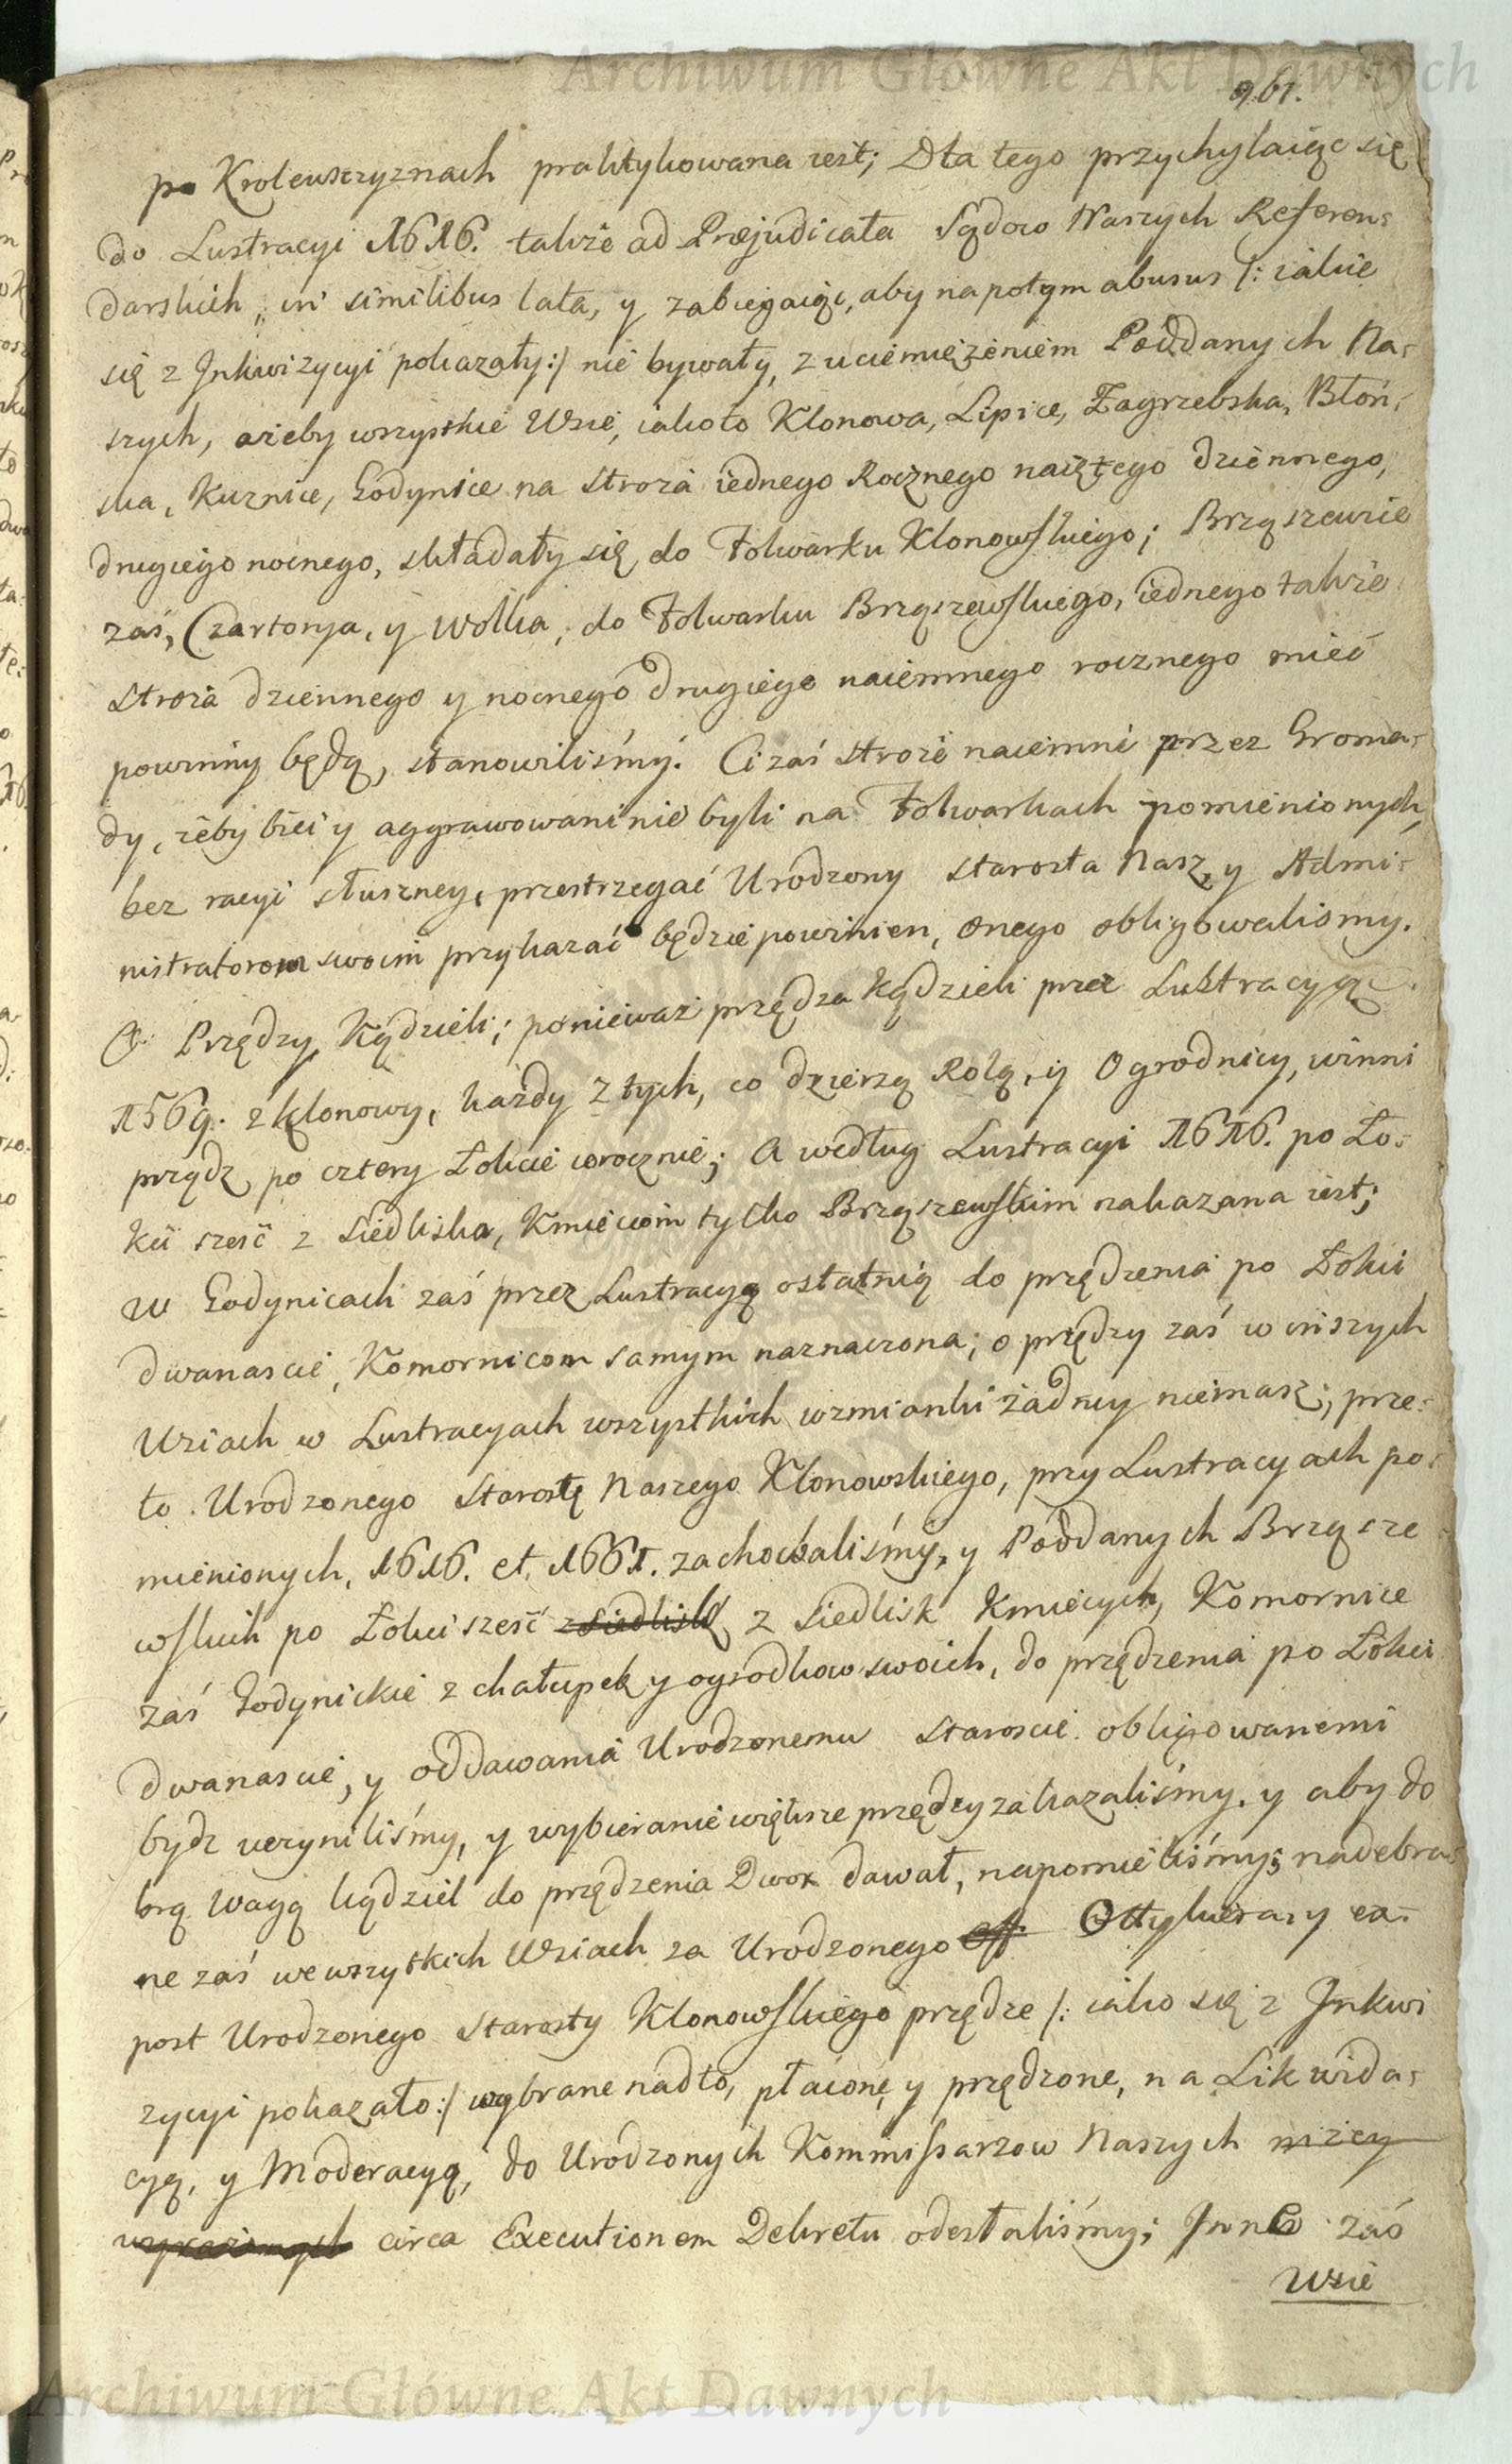 Archiwum Główne Akt Dawnych
961.
po Krolewszczyznach praktykowana iest; Dla tego przychylaiąc się
do Lustracyi 1616. także ad Præjudicata Sądow Naszych Referen:
darskich, in similibus lata, y zabiegaiąc, aby napotym abusus /: iakie
się z Inkwizycyi pokazały :/ nie bywały, z uciemięzeniem Poddanych Na:
szych, ażeby wszystkie Wsie, iakoto Klonowa, Lipice, Zagrzebska, Błoń:
ska, Kuznice, Godynice na stroża iednego Rocznego naiętego dziennego,
drugiego nocnego, składały się do Folwarku Klonowskiego; Brząszewie
zaś, Czartorya, y Wolka, do Folwarku Brząszewskiego, iednego także
stroża dziennego y nocnego drugiego naiemnego rocznego mieć
powinny będą, stanowiliśmy. Ci zaś stroże naiemni przez Groma:
dy, żeby bici y aggrawowani nie byli na Folwarkach pomienionych,
bez racyi słuszney, przestrzegać Urodzony Starosta Nasz, y Admi:
nistratorom swoim przykazać będzie powinien, onego obligowalismy.
O Przędzy Kądzieli; ponieważ przędza Kądzieli przez Lustracyą
1569. z Klonowy, każdy z tych, co dzierzą Rolą, y Ogrodnicy, winni
prządz po cztery Łokcie worocznie; A według Lustracyi 1616. po Ło:
kci szesć z Siedliska, Kmieciom tylko Brząszewskim nakazana iest;
w Godynicach zaś przez Lustracyą ostatnią do przędzenia po Łokci
dwanascie, Komornicom samym naznaczona; o przędzy zaś w inszych
Wsiach w Lustracyach wszystkich wzmianki żadney niemasz; prze:
to Urodzonego Starostę Naszego Klonowskiego, przy Lustracyach po:
mienionych, 1616. et. 1661. zachowaliśmy, y Poddanych Brząsze
wskich po Łokci szesć z siedlisk z Siedlisk Kmiecych, Komornice
zaś Godynickie z chałupek y ogrodkow swoich, do przędzenia po Łokci
dwanascie, y oddawania Urodzonemu Staroscie obligowanemi
bydz uczyniliśmy, y wybieranie większe przędzy zakazaliśmy, y aby do
brą wagą kądziel do przędzenia Dwor dawał, napomieliśmy; nadebra:
ne zaś we wszytkich Wsiach za Urodzonego Ottyhierazy ex:
post Urodzonego Starosty Klonowskiego przędze /: iako się z Inkwi
zycyi pokazało :/ wybrane nadto, płacone y przędzone, na Likwida:
cyą, y Moderacyą, do Urodzonych Kommissarzow Naszych niżey
wyrażonych circa Executionem Dekretu odesłaliśmy; Inne zaś
Wsie
Archiwum Główne Akt Dawnych